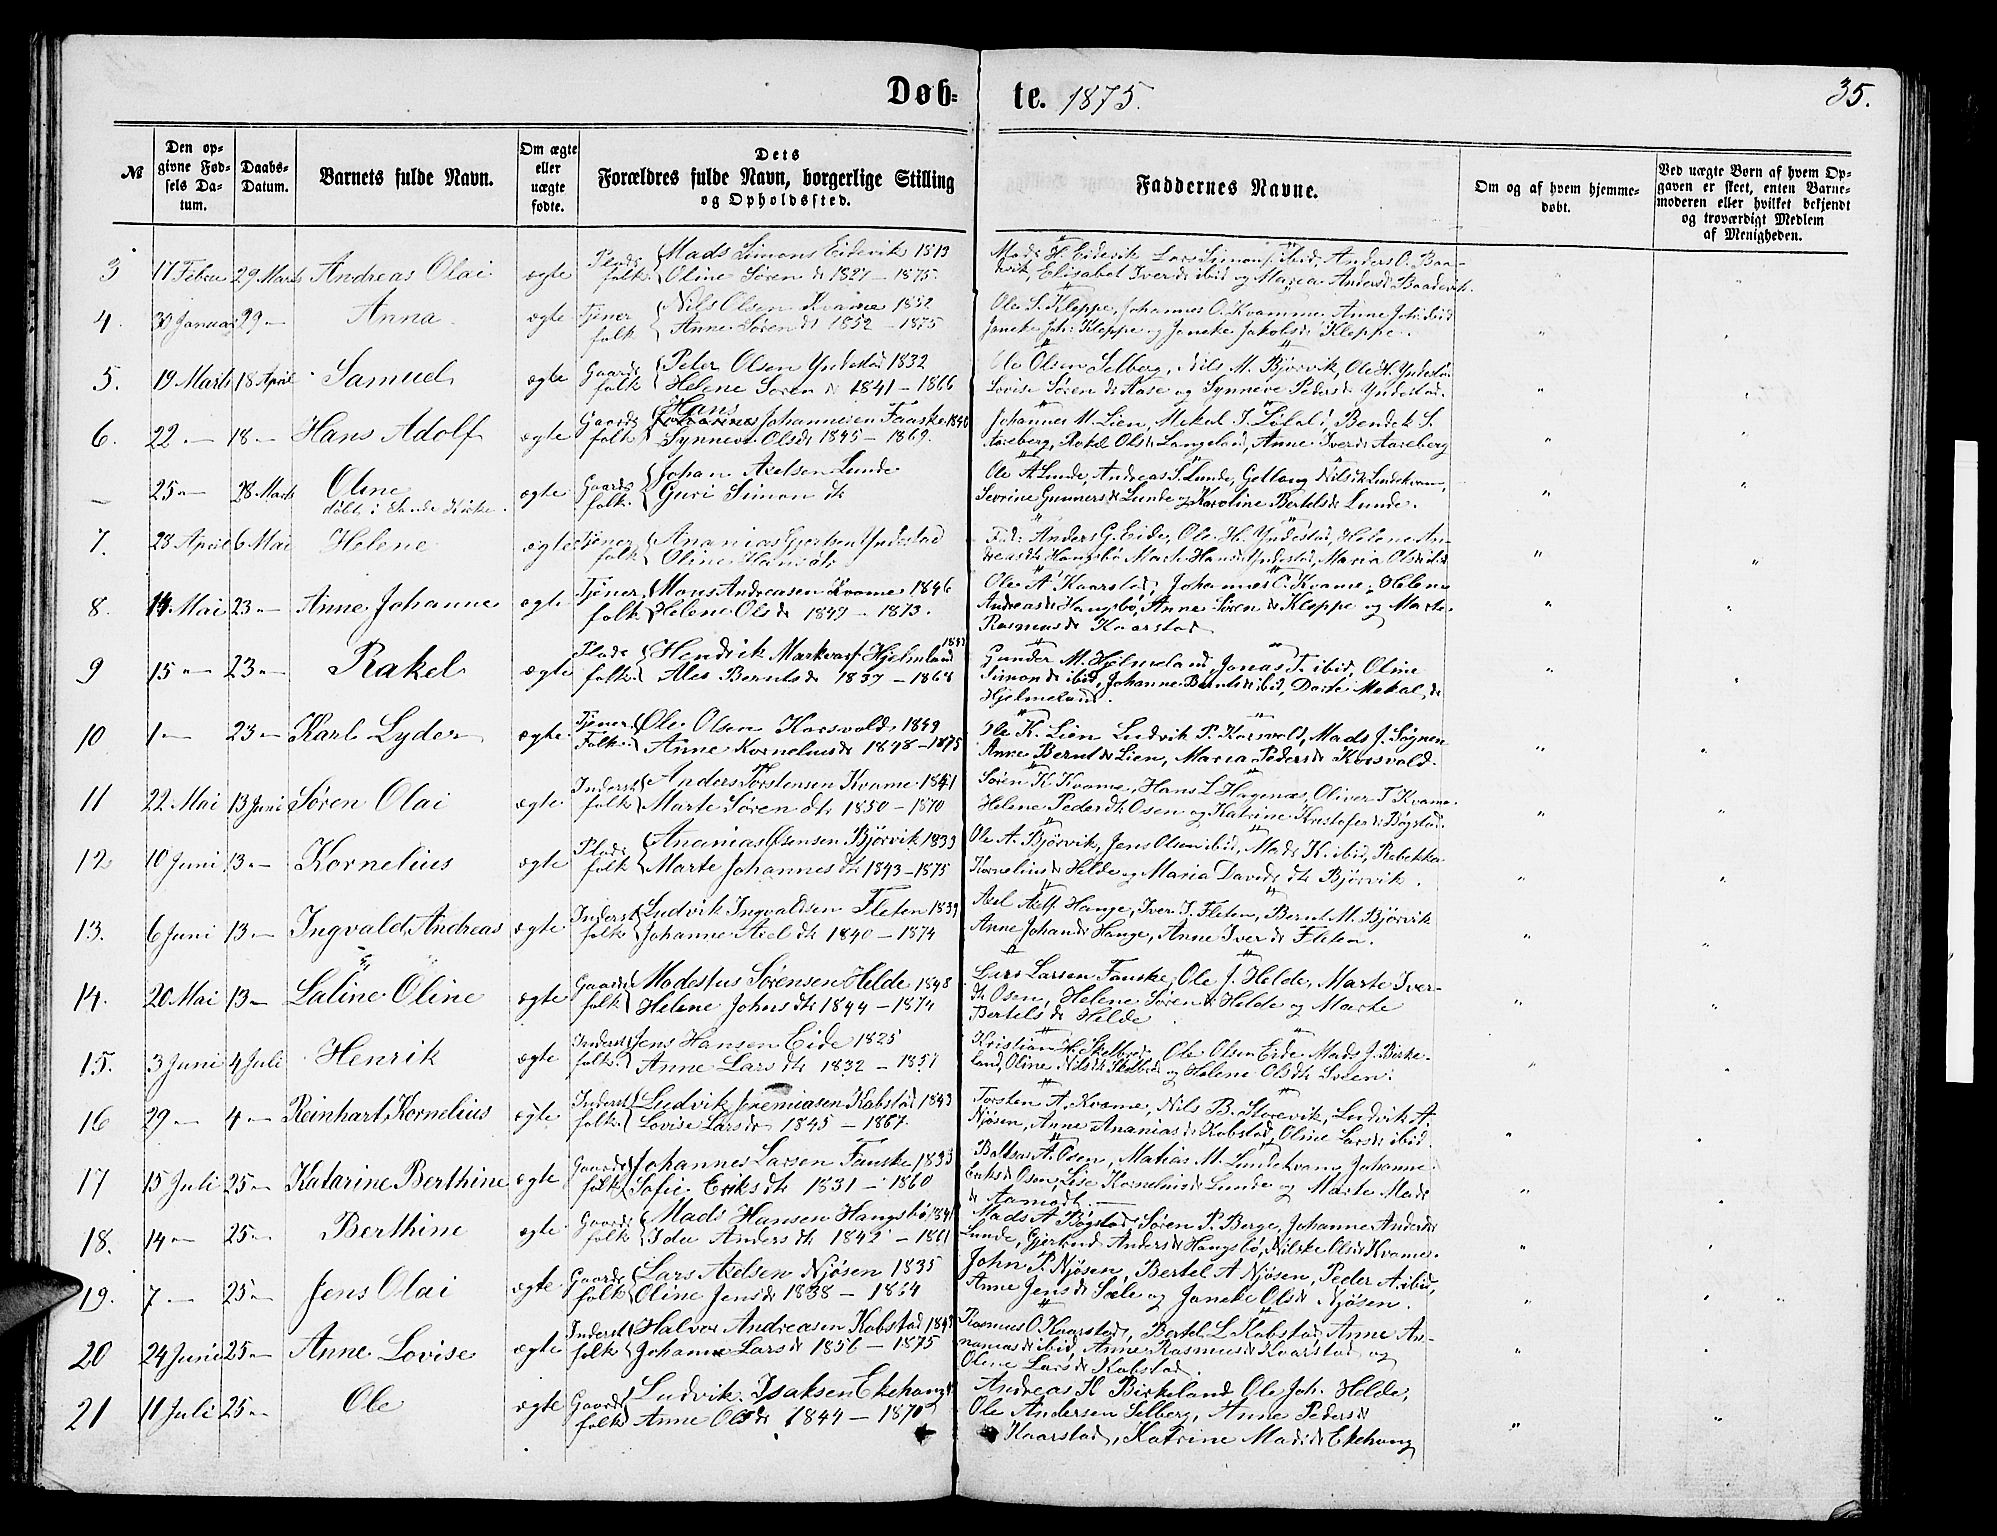 Døb-
te. 1875.
35.
№
Den op-
givne Fød-
sels Da-
tum.
Daabs-
Datum.
Barnets fulde Navn.
Om ægte
eller
uægte
fødte.
Dets
Forældres fulde Navn, borgerlige Stilling
og Opholdssted.
Faddernes Navne.
Om og af hvem hjemme-
døbt.
Ved uægte Børn af hvem Op-
gaven er skeet, enten Barne-
moderen eller hvilket bekjendt
og troværdigt Medlem
af Menigheden.
3 17 Febru 29 Marts Andreas Olai ægte Plads folk Mads Simons Eidevik 1813
Oline Søren dt 1827 – 1875.
Mads H. Eidevik Lars Simons ibid, Anders O. Baa-
vik, Elisabet Iver dt ibid og Maria Anders dt Baadevik
4. 30 Januar 29 – Anna ægte Tjener folk Nils Olsen Kvame 1852
Anne Søren dt 1852 – 1875
Ole S. Kleppe, Johannes O. Kvamme Anne Joh. ibid
Joh: Kleppe og Janeke Jakobs dt Kleppe.
5. 19 Marts 18 April Samuel ægte Gaards folk Peter Olsen Yndestad 1832
Helene Søren dt 1841 – 1866
Ole Olsen Selberg, Nils M. Bjørvik, Ole H. Yndestad
Lovise Søren dt Aase og Synneve Peders dt Yndestad.
6. 22 – 18 – Hans Adolf ægte Gaards folk Hans Johannesen Fauske 1840
Synneve Ols dt 1845 – 1869.
Johannes M. Lien, Mekal I. Bendek S.
Aareberg, Rakel Ols dt Langeland, Anne Iver dt Aareberg
– 25 – 28 Marts Oline ægte Gaards folk Johan Axelsen Lunde
døbt i Kirke. Guri Simon dt
Ole A Lunde, Andreas S. Lunde, Lundekvam,
Sevrine Gunners dt Lunde og Karoline Bertels dt Lunde.
7. 28 April 6 Mai Helene ægte Tjener folk Ananias Gjertsen Yndestad
Oline Hans dt
Anders G. Eide, Ole H. Yndestad, Helene An-
dreas dt Hangsbø Marte Hans dt Yndestad, Maria Ols dt ibid
8. 14 Mai 23 – Anne Johanne ægte Tjener folk Mons Andreasen Kvame 1846
Helene Ols dt 1847 – 1873.
Ole A Kaarstad, Johannes O. Kvame, Helene
Andreas dt Hangsbø, Anne Søren dt Kleppe og Marte
Rasmus dt Kaarstad
9 15 – 23 – Rakel ægte Plads folk Hendrik Markvars. Hjelmland
Ales Bernts dt 1837 – 1868
Gunder M. Hjelmeland, Jonas T. ibid, Oline
Simon dt ibid, Johanne Bernts dt ibid, Dorte Mekal dt
Hjelmeland.
10 1 – 23 – Karl Lyder ægte Tjener Folk Ole Olsen Korsvold 1849
Anne Kornelius dt 1848 – 1875
Ole K. Lien Ludvik P. Korsvold, Mads J. Sognen
Anne Bernt dt Lien, Maria Peders dt Korsvold.
11 22 Mai 13 Juni Søren Olai ægte Inderst folk Anders Torstensen Kvame 1841
Marte Søren dt 1850 – 1870
Søren K. Kvame, Hans L Hagenæs, Oliver T Kvame.
Helene Peder dt Osen og Katrine Kristofer dt Bøgstad.
12 10 Juni 13 – Kornelius ægte Plads folk Ananias Bjørvik 1833
Marte Johannes dt 1843 – 1875
Ole A. Bjørvik, Jens Olsen ibid, Mads K. ibid, Rebekka
Kornelius dt Helde og Maria Davids dt Bjørvik.
13. 6 Juni 13 – Ingvald Andreas ægte Inderst folk Ludvik Ingvaldsen Fleten 1839
Johanne Axel dt 1840 – 1874
Axel Axelf. Hange, Iver I. Fleten, Bernt M. Bjørvik
Anne Johan dt Hange, Anne Iver dt Fleten.
14. 20 Mai 13 – Laline Oline ægte Gaards folk Modestus Sørensen Helde 1848
Helene Johns dt 1844 – 1874
Lars Larsen Fauske, Ole J. Helde, Marte Iver-
dt Osen, Helene Søren dt Helde og Marte
Bertels dt Helde
15. 3 Juni 4 Juli Henrik ægte Inderst folk Jens Hansen Eide 1825
Anne Lars dt 1832 – 1857
Kristian Ole Olsen Eide Mads J. Birke-
land, Oline Nils dt og Helene Ols dt
16 29 – 4 – Reinhart Kornelius ægte Inderst folk Ludvik Jeremiasen Kobstad 1843
Lovise Lars dt 1845 – 1867.
Torsten A. Kvame, Nils B. Storevik, Ludvik A.
Njøsen, Anne Ananias dt Kobstad, Oline Lars dt ibid.
17 15 Juli 25 – Katarine Berthine ægte Gaards folk Johannes Larsen Fauske 1833
Sofie Eriks dt 1831 – 1860
Baltsar A. Osen, Matias M. Lundekvam, Johanne
Eriks dt Osen, Lise Kornelius dt Lunde og Marte Mads
dt
18. 14 – 25 – Berthine ægte Gaards folk Mads Hansen Hangsbø 1841
Ida Anders dt 1842 – 1861
Mads A Bøgstad, Søren P. Berge, Johanne Anders dt
Lunde, Gjertrud Anders dt Hangsbø, Nilske Ols dt Kvame.
19. 7 – 25 – Jens Olai ægte Gaards folk Lars Axelsen Njøsen 1835
Oline Jens dt 1838 – 1864
John P. Njøsen, Bertel A Njøsen, Peder A. ibid,
Anne Jens dt Sæle og Janeke Ols dt Njøsen.
20 24 Juni 25 – Anne Lovise ægte Inderst folk Halvor Andreasen Kobstad
Johanne Lars dt 1856 – 1875
Rasmus O Kaarstad, Bertel L Kobstad, Anne An-
nanias dt ibid, Anne Rasmus dt Kaarstad og
Oline Lars dt Kobstad.
21 11 Juli 25 – Ole ægte Gaards folk Ludvik Isaksen Ekehaug
Anne Ols dt 1844 – 1870
Andreas K Birkeland Ole Joh. Helde,
Ole Andersen Selberg, Anne Peders dt
Kaarstad, Katrine Mads dt Ekehaug